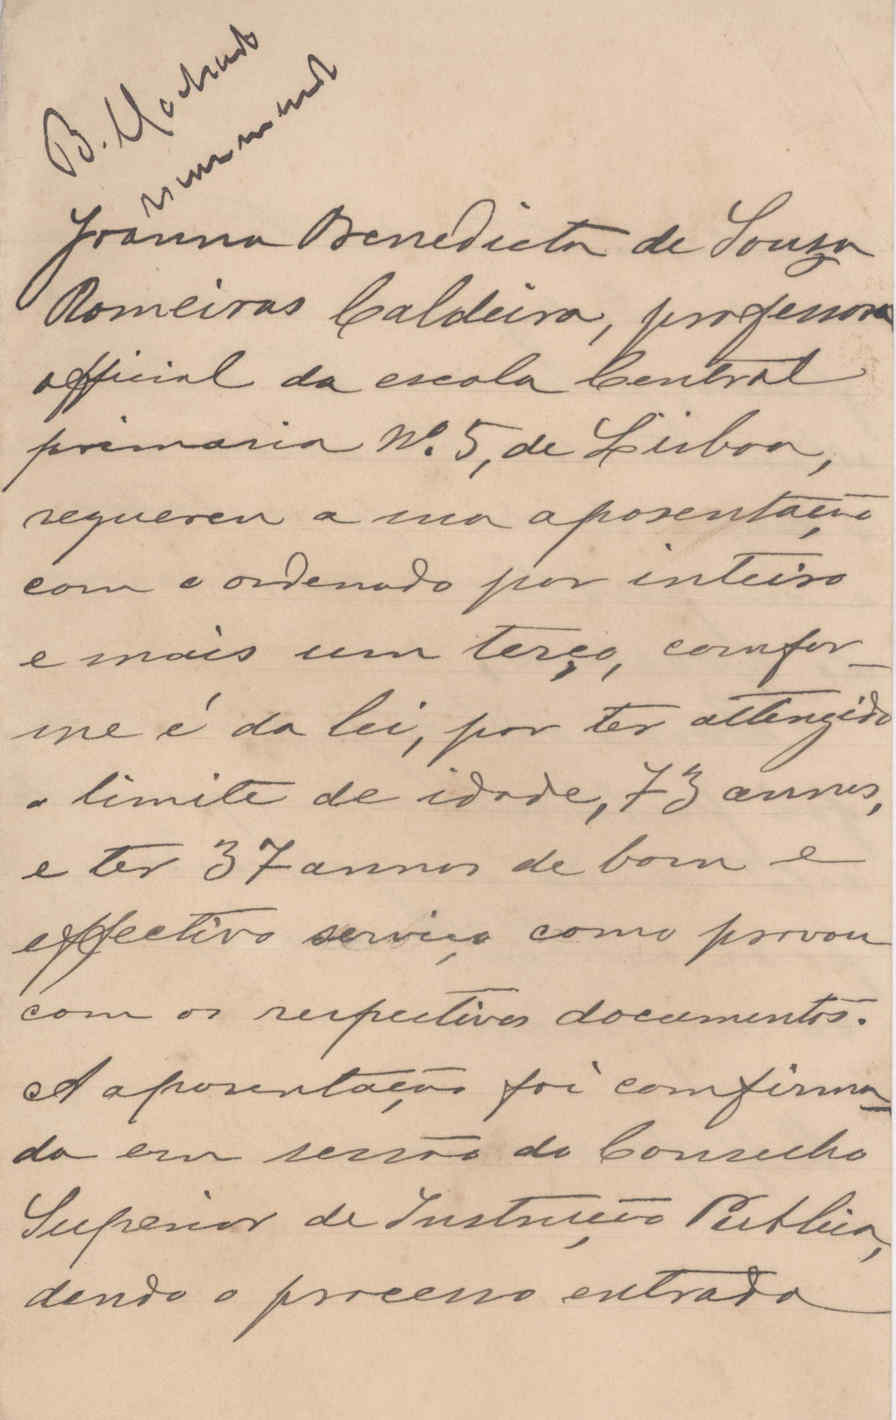 B. Machado
Joanna Benedicta de Souza
Romeiras Caldeira, professora
official da escola Central
primaria Nº. 5, de Lisboa,
requereu a sua aposentação
com o ordenado por inteiro
e mais um terço, comfor-
me é da lei, por ter attengido
o limite de idade, 73 annos,
e ter 37 annos de bom e
effectivo serviço como provou
com os respectivos documentos.
A aposentação foi comfirma-
da em sessão do Conselho
Superior de Instrução Publica,
dendo o processo entrado